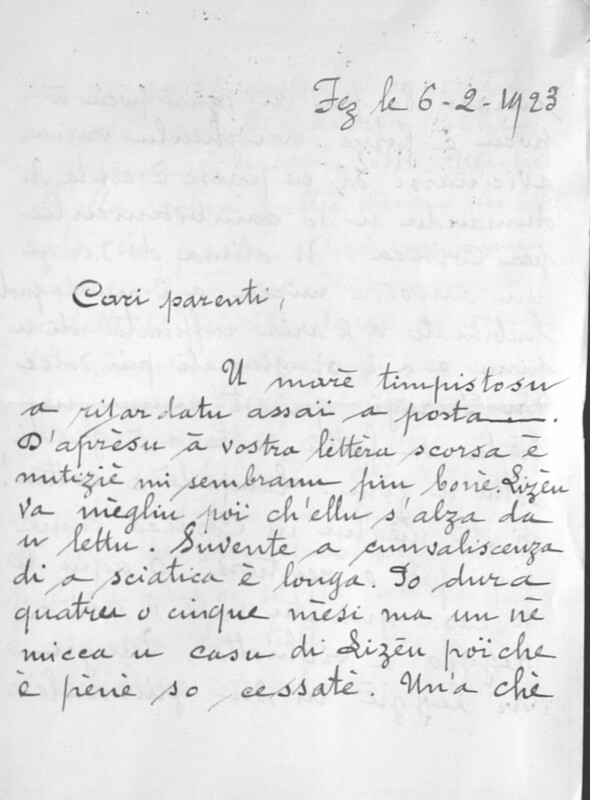 Fez le 6-2-1923
Cari parenti,
U marè timpistosu
a ritardatu assaï a posta.
D'aprèsu à vostra lèttèra scorsa è
nutiziè mi sembranu piu bonè. Lizèu
va mègliu poï ch'ellu s'alza da
u lettu. Suvente a cunvaliscenza
di a sciatica è longa. So dura
quatru o cinque mèsi ma un nè
micca u casu di Lizèu poïche
è pènè so cessatè. Un'a chè